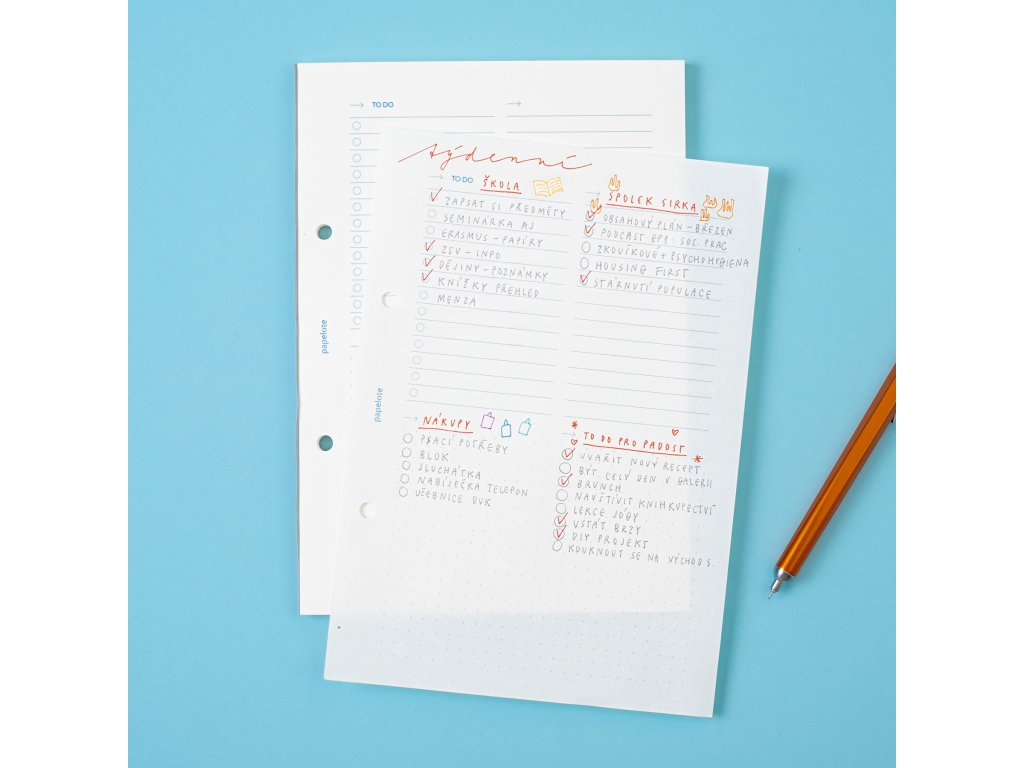 TO DO
papelote
týdenní
TO DO ŠKOLA
ZAPSAT SI PŘEDMĚTY
SEMINÁRKA AJ
ERASMUS – PAPÍRY
ZSV – INFO
DĚJINY – POZNÁMKY
KNÍŽKY PŘEHLED
MENZA
SPOLEK SIRKA
OBSAHOVÝ PLÁN – BŘEZEN
PODCAST EP1: SOC. PRAC
ZKOUŠKOVÉ + PSYCHOHYGIENA
HOUSING FIRST
STÁRNUTÍ POPULACE
papelote
NÁKUPY
PSACÍ POTŘEBY
BLOK
SLUCHÁTKA
NABÍJEČKA TELEFON
UČEBNICE DVK
TO DO PRO RADOST
UVAŘIT NOVÝ RECEPT
BÝT CELÝ DEN V GALERII
BRUNCH
NAVŠTÍVIT KNIHKUPECTVÍ
LEKCE JÓGY
VSTÁT BRZY
DIY PROJEKT
KOUKNOUT SE NA VÝCHOD S.